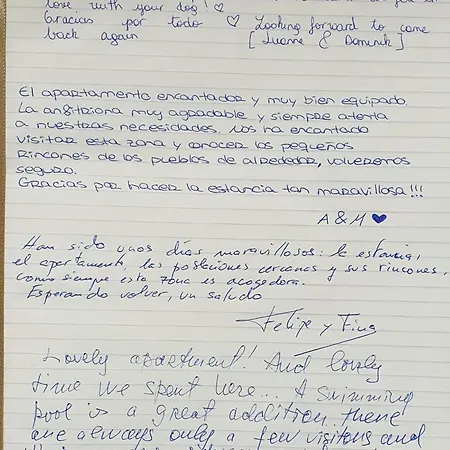 love with your dog! ♡
Gracias por todo ♡ Looking forward to come
back again [Luanne & Dominik]
El apartamento encantador y muy bien equipado.
La anfitriona muy agradable y siempre atenta
a nuestras necesidades. Nos ha encantado
visitar esta zona y conocer los pequeños
rincones de los pueblos de alrededor, volveremos
seguro.
Gracias por hacer la estancia tan maravillosa!!!
A & M ♥
Han sido unos días maravillosos: la estancia,
el apartamento, las poblaciones cercanas y sus rincones,
como siempre esta zona es acogedora.
Esperando volver, un saludo
Felipe y Fina
Lovely apartment! And lovely
time we spent here... A swimming
pool is a great addition, there
are always only a few visitors and